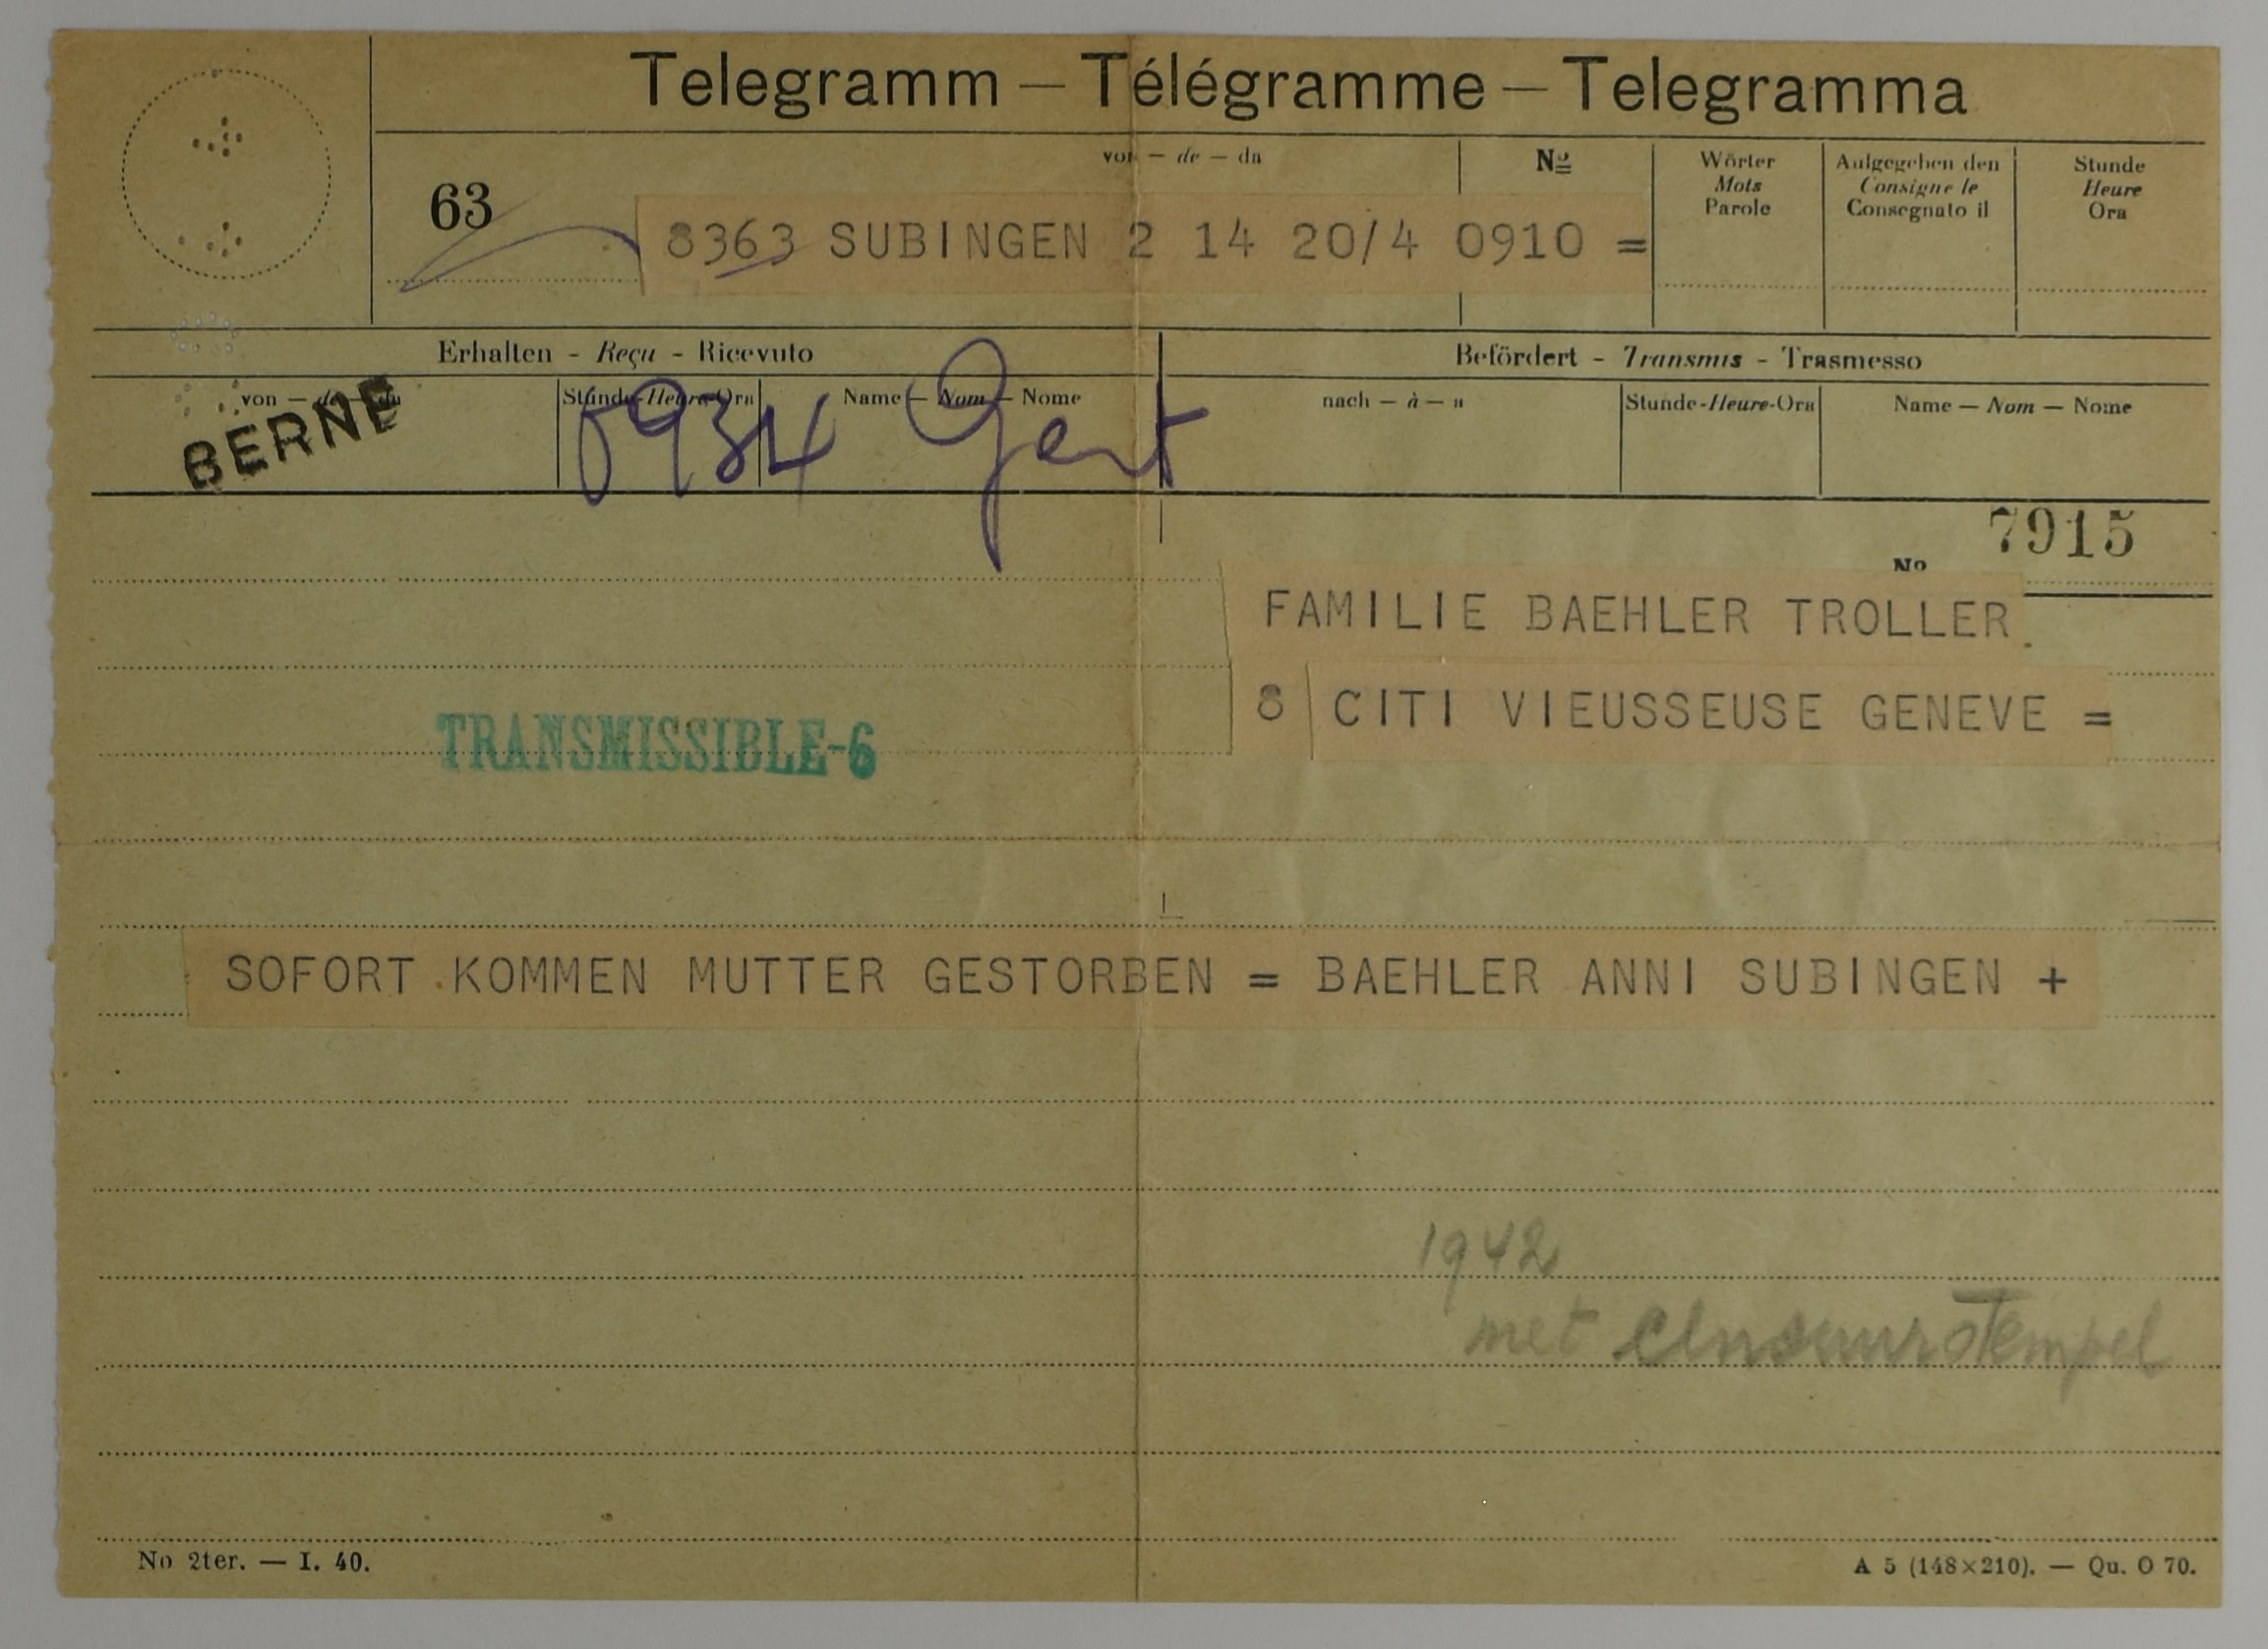 Telegramm — Télégramme — Telegramma
von — de — da
No
Wörter
Mots
Parole
Aufgegeben den
Consigné le
Consegnato il
Stunde
Heure
Ora
63
8363 SUBINGEN 2 14 20/4 0910 =
Erhalten - Reçu - Ricevuto
Befördert - Transmis - Trasmesso
von — de — da
Stunde-Heure-Ora
Name — Nom — Nome
nach — à — a
Stunde-Heure-Ora
Name — Nom — Nome
BERNE
0934
7915
No
FAMILIE BAEHLER TROLLER
8 CITI VIEUSSEUSE GENEVE =
TRANSMISSIBLE-6
SOFORT KOMMEN MUTTER GESTORBEN = BAEHLER ANNI SUBINGEN +
1942
met
No 2ter. — I. 40.
A 5 (148×210). — Qu. O 70.